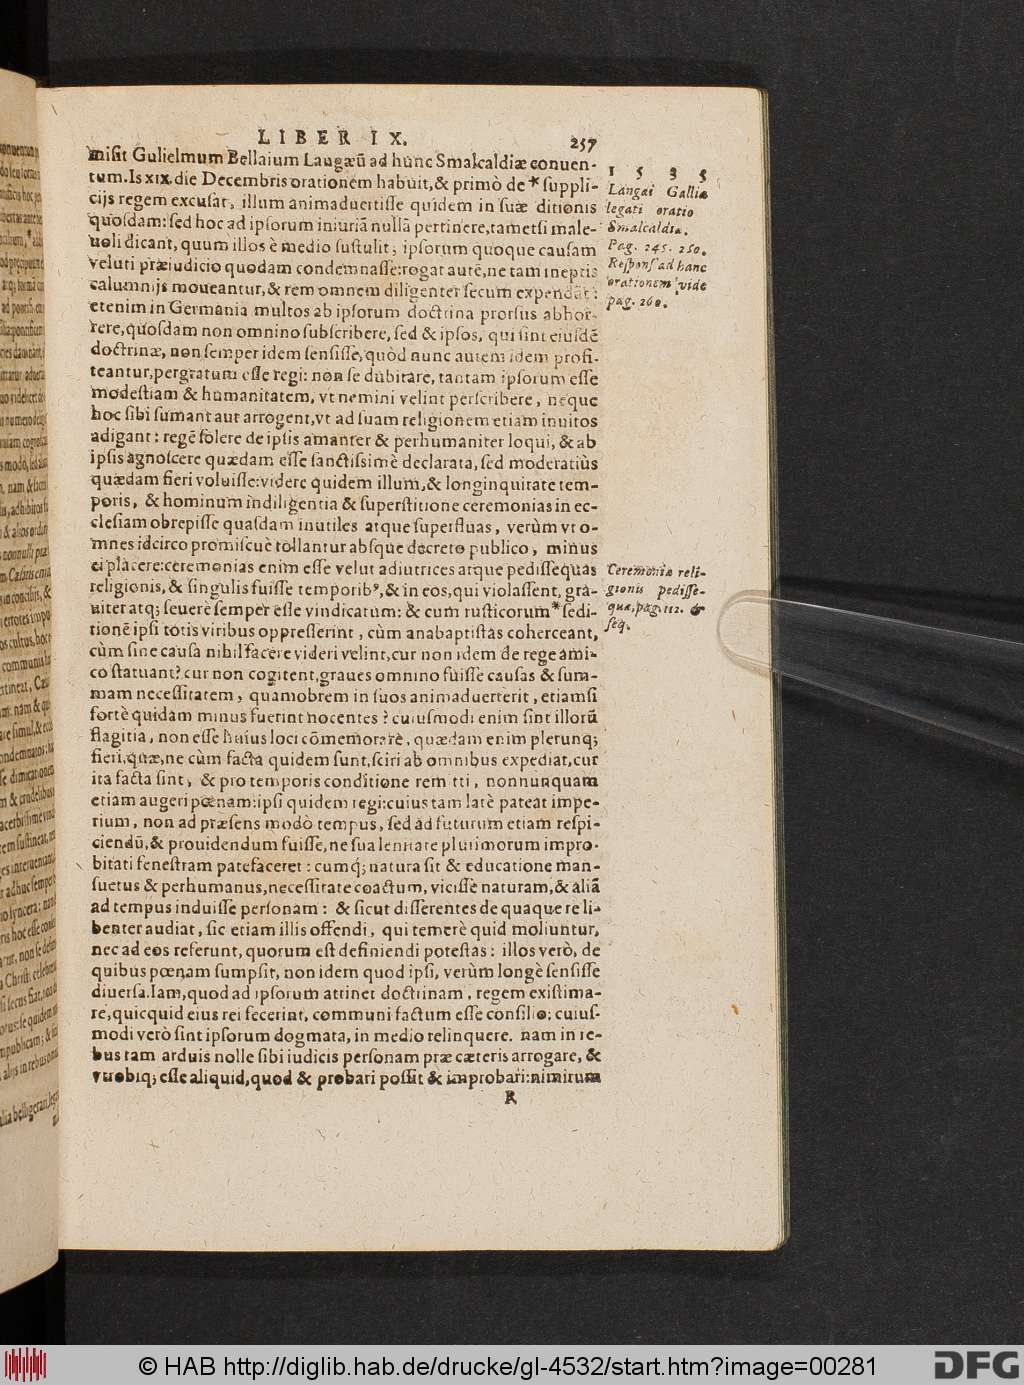 LIBER IX. 257
misit Gulielmum Bellaium Langæũ ad hunc Smalcaldiæ conuen-
tum. Is XIX. die Decembris orationem habuit, & primò de * suppli-
cijs regem excusat, illum animaduertisse quidem in suæ ditionis
quosdam: sed hoc ad ipsorum iniuriã nullã pertinere, tametsi male-
uoli dicant, quum illos è medio sustulit, ipsorum quoque causam
veluti præiudicio quodam condemnasse: rogat autẽ, ne tam ineptis
calumnijs moueantur, & rem omnem diligenter secum expendãt:
etenim in Germania multos ab ipsorum doctrina prorsus abhor-
rere, quosdam non omnino subscribere, sed & ipsos, qui sint eiusdẽ
doctrinæ, non semper idem sensisse, quòd nunc autem idem profi-
teantur, pergratum esse regi: non se dubitare, tantam ipsorum esse
modestiam & humanitatem, vt nemini velint perscribere, neque
hoc sibi sumant aut arrogent, vt ad suam religionem etiam inuitos
adigant: regẽ solere de ipsis amanter & perhumaniter loqui, & ab
ipsis agnoscere quædam esse sanctissimè declarata, sed moderatiùs
quædam fieri voluisse: videre quidem illum, & longinquitate tem-
poris, & hominum indiligentia & superstitione ceremonias in ec-
clesiam obrepisse quasdam inutiles atque superfluas, verùm vt o-
mnes idcirco promiscuè tollantur absque decreto publico, minus
ei placere: ceremonias enim esse velut adiutrices atque pedissequas
religionis, & singulis fuisse temporibꝰ, & in eos, qui violassent, gra-
uiter atq; seuerè semper esse vindicatum: & cum rusticorum * sedi-
tionẽ ipsi totis viribus oppresserint, cùm anabaptistas coherceant,
cùm sine causa nihil facere videri velint, cur non idem de rege ami-
co statuant? cur non cogitent, graues omnino fuisse causas & sum-
mam necessitatem, quamobrem in suos animaduerterit, etiamsi
fortè quidam minus fuerint nocentes? cuiusmodi enim sint illorũ
flagitia, non esse huius loci cõmemorare, quædam enim plerunq;
fieri, quæ, ne cùm facta quidem sunt, sciri ab omnibus expediat, cur
ita facta sint, & pro temporis conditione rem tti, nonnunquam
etiam augeri pœnam: ipsi quidem regi: cuius tam latè pateat impe-
rium, non ad præsens modò tempus, sed ad futurum etiam respi-
ciendũ, & prouidendum fuisse, ne sua lenitate plurimorum impro-
bitati fenestram patefaceret: cumq; natura sit & educatione man-
suetus & perhumanus, necessitate coactum, vicisse naturam, & aliã
ad tempus induisse personam: & sicut differentes de quaque re li-
benter audiat, sic etiam illis offendi, qui temerè quid moliuntur,
nec ad eos referunt, quorum est definiendi potestas: illos verò, de
quibus pœnam sumpsit, non idem quod ipsi, verùm longè sensisse
diuersa. Iam, quod ad ipsorum attinet doctrinam, regem existima-
re, quicquid eius rei fecerint, communi factum esse consilio; cuius-
modi verò sint ipsorum dogmata, in medio relinquere. nam in re-
bus tam arduis nolle sibi iudicis personam præ cæteris arrogare, &
vtrobiq; esse aliquid, quod & probari possit & improbari: nimirum
R
1 5 3 5
Langæi Galliæ
legati oratio
Smalcaldiæ.
Pag. 245. 250.
Respons' ad hanc
orationem vide
pag. 260.
Ceremoniæ reli-
gionis pedisse-
quæ, pag. 112. &
seq.
© HAB http://diglib.hab.de/drucke/gl-4532/start.htm?image=00281
DFG